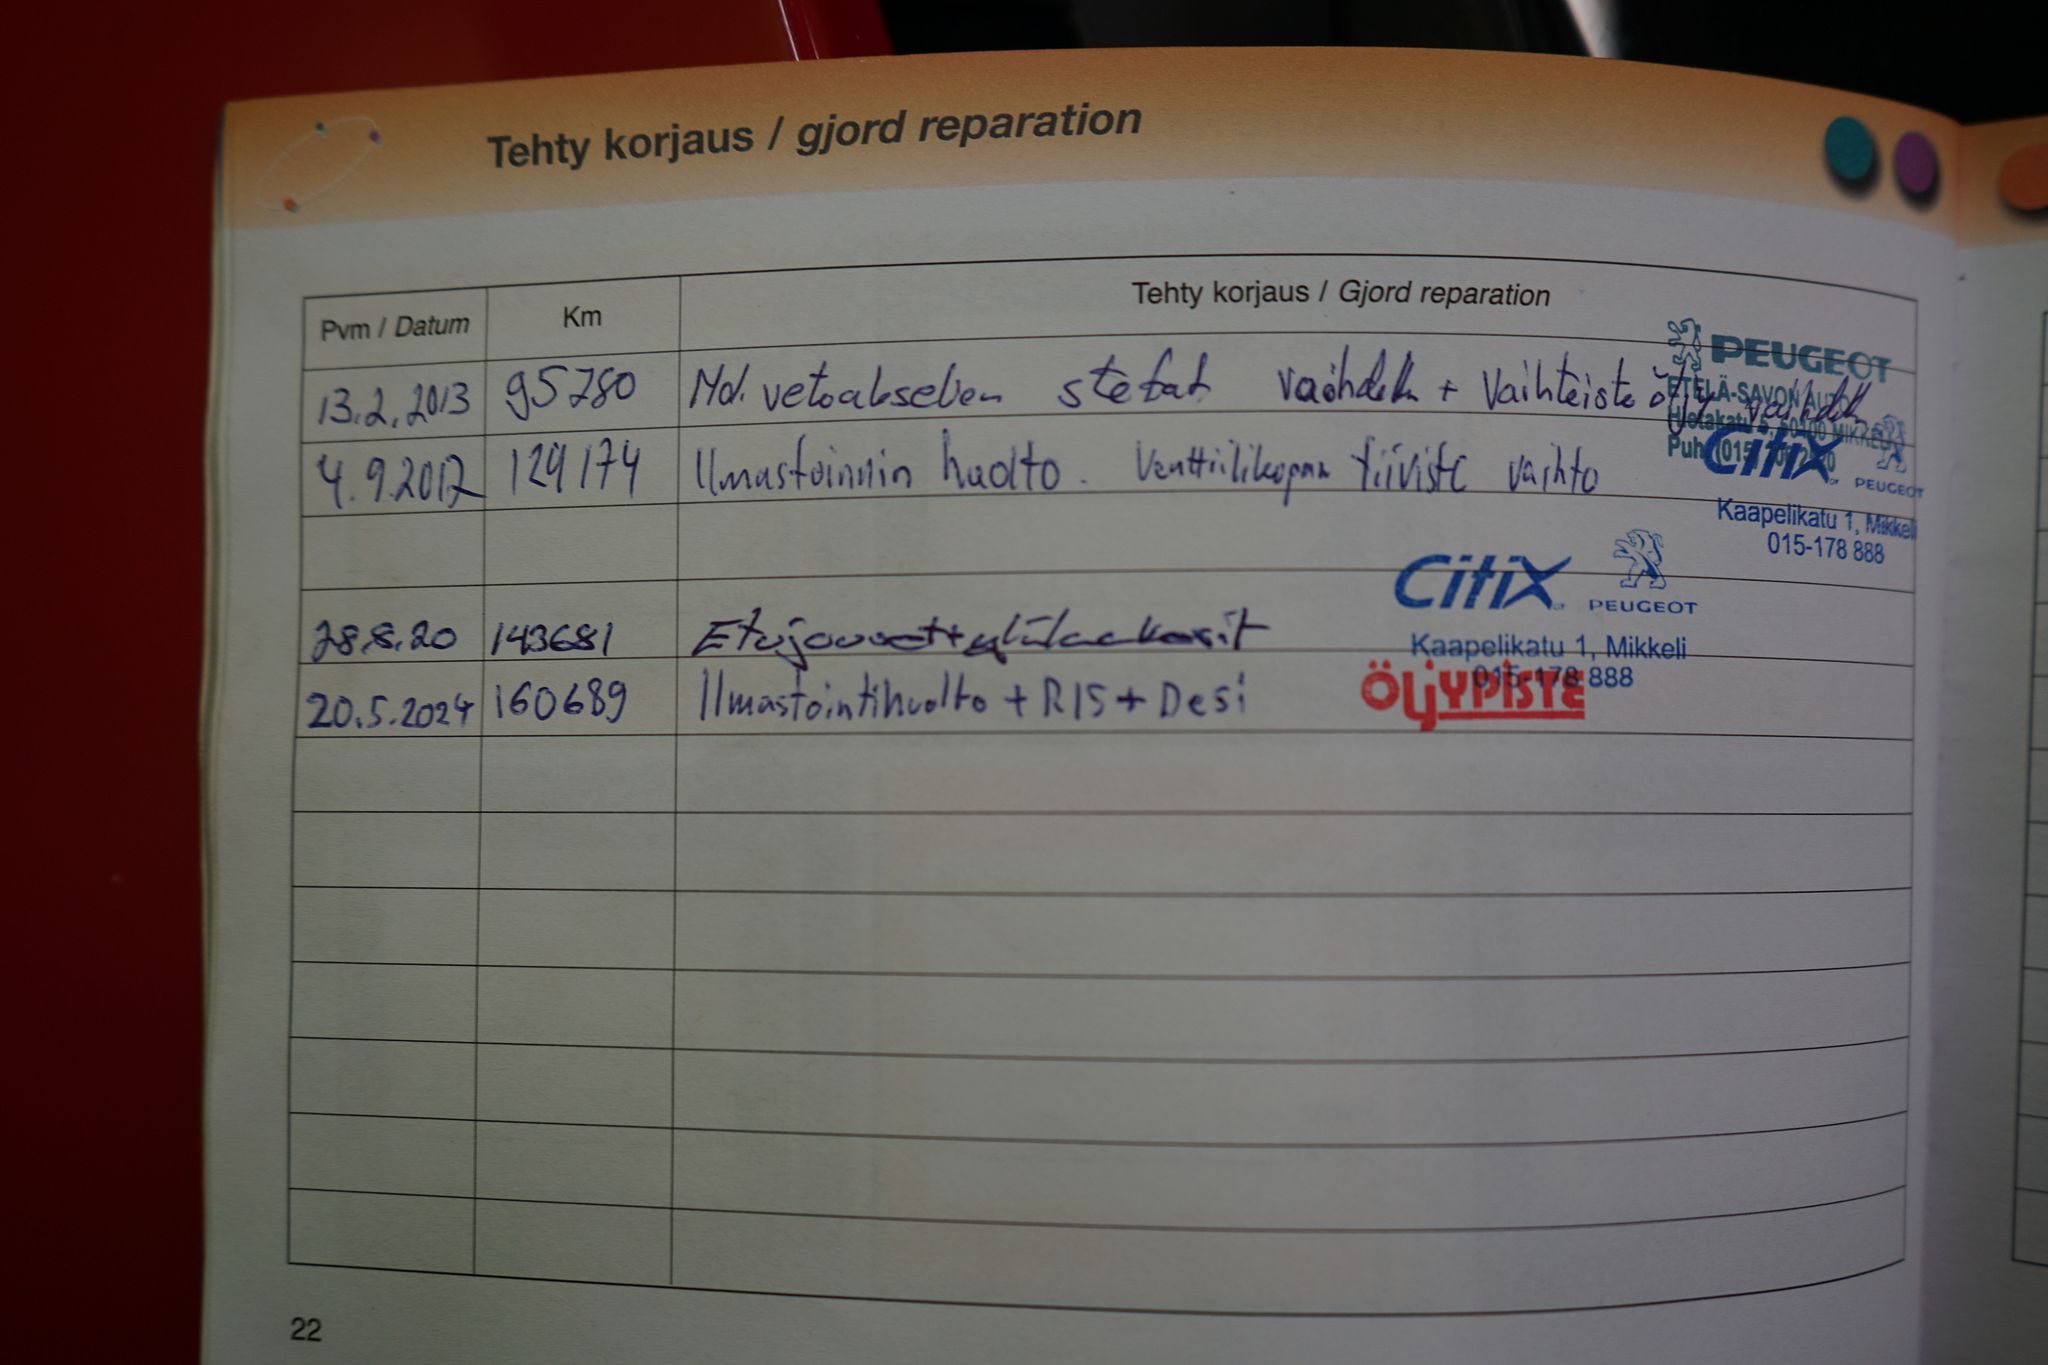 Tehty korjaus / gjord reparation
Pvm / Datum Km Tehty korjaus / Gjord reparation
13.2.2013 95780 Mol. vetoakselien stefat vaihdettu + vaihteisto öljy vaihdettu
PEUGEOT
ETELÄ-SAVON AUTO
MIKKELI
Puh. (015)
4.9.2017 129174 Ilmastoinnin huolto. Venttiilikopan tiiviste vaihto
Citix PEUGEOT
Kaapelikatu 1, Mikkeli
015-178 888
28.8.20 143681 Etujouset + ylälaakerit
Citix PEUGEOT
Kaapelikatu 1, Mikkeli
015-178 888
20.5.2024 160689 Ilmastointihuolto + R15 + Desi
ÖLJYPISTE
22